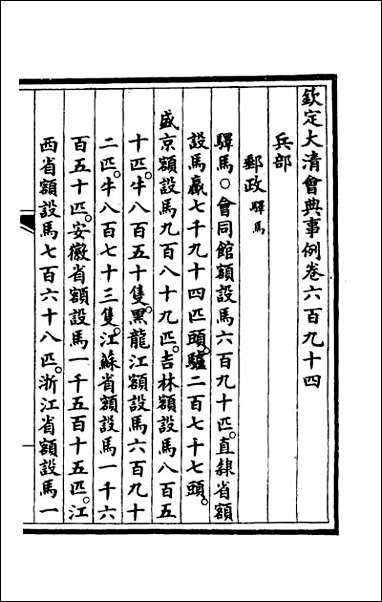 欽定大清會典事例卷六百九十四
兵部
郵政驛馬
驛馬○會同館額設馬六百九十匹。直隸省額
設馬驘七千九十四匹頭。驢二百七十七頭。
盛京額設馬九百八十九匹。吉林額設馬八百五
十匹。牛八百五十隻。黑龍江額設馬六百九十
二匹。牛八百七十三隻。江蘇省額設馬一千六
百五十匹。安徽省額設馬一千五百十五匹。江
西省額設馬七百六十八匹。浙江省額設馬一